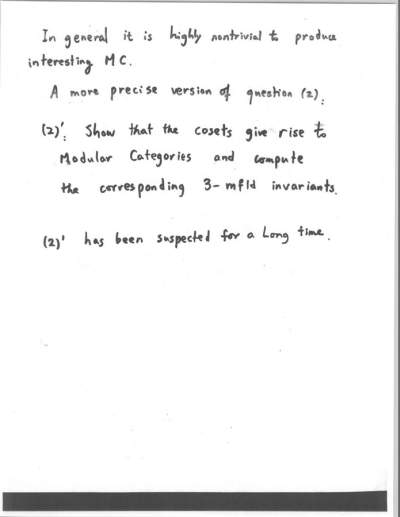 In general it is highly nontrivial to produce
interesting MC.
A more precise version of question (2):
(2)': Show that the cosets give rise to
Modular Categories and compute
the corresponding 3-mfld invariants.
(2)' has been suspected for a Long time.